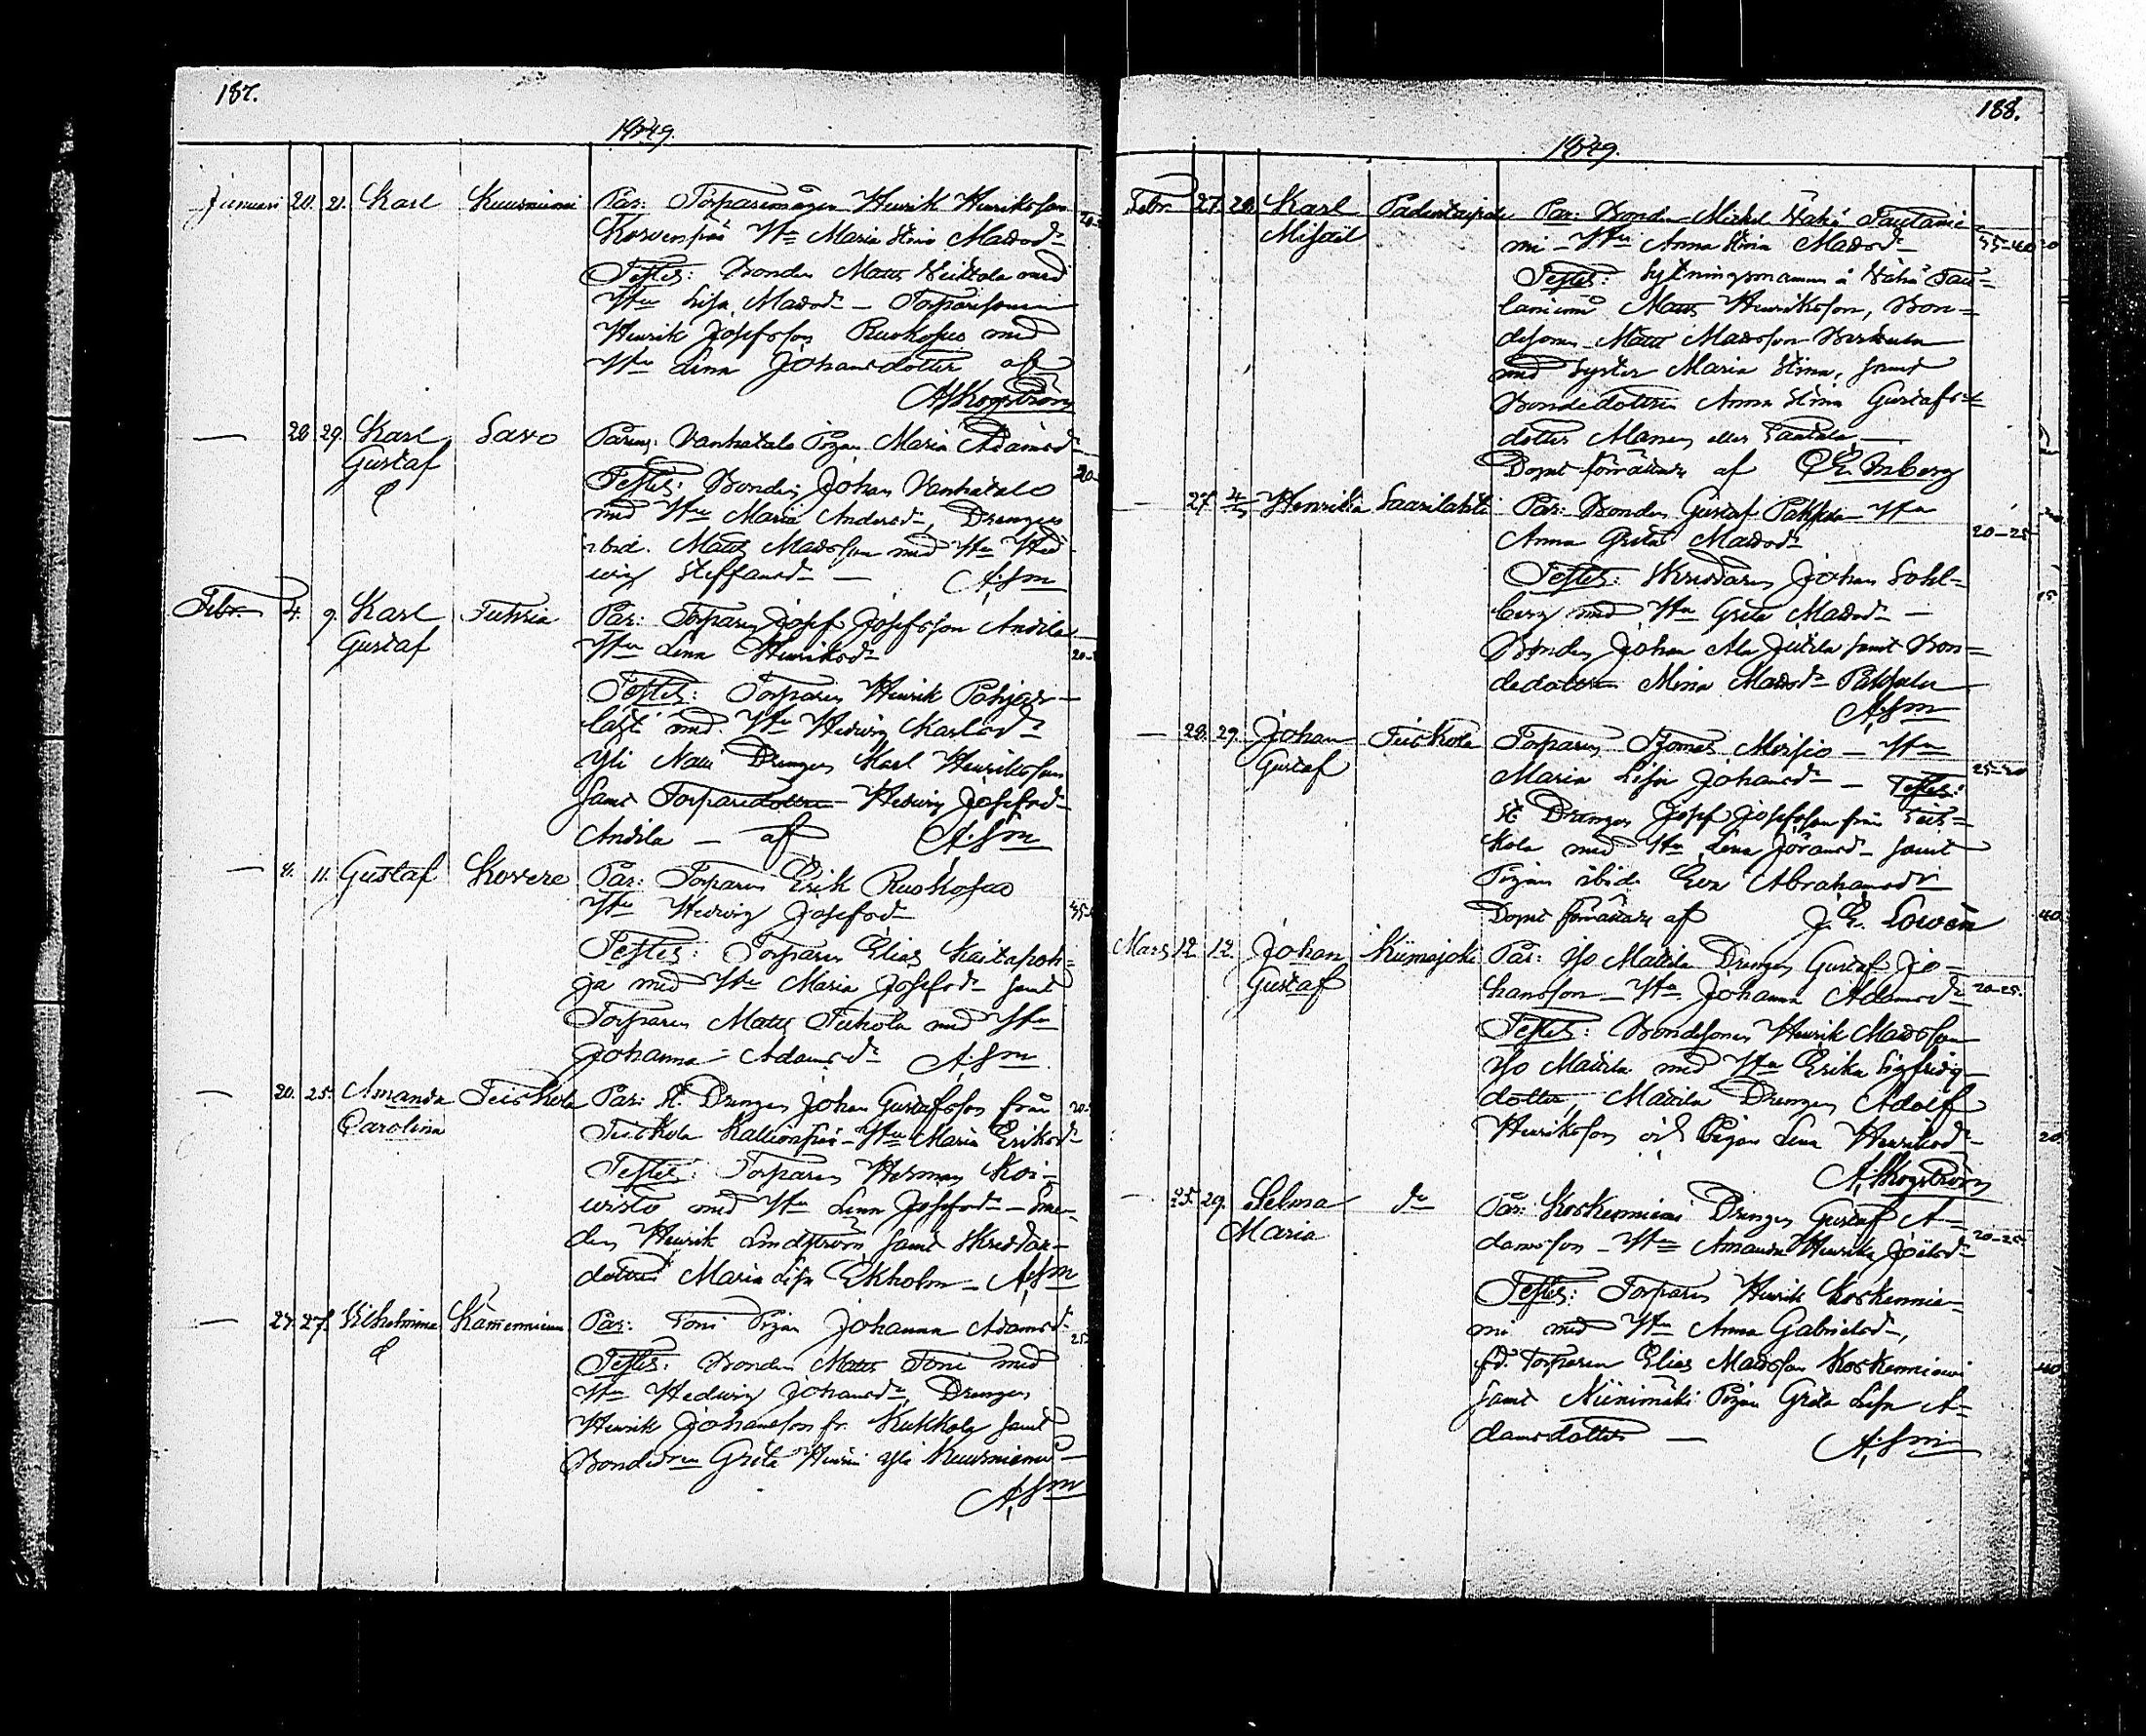 187.
1849.
Januari 20. 21. Karl Kuusniemi Par: Torparemågen Henrik Henriksson
Korvenpää Hu Maria Stina Matsdr 20-
Testes: Bonden Matts Heittola med
Hu Lisa Matsdr – Torparesonen
Henrik Josefsson Ruokosuo med
Hu Lena Johansdotter af
A. Skogström
— 28 29. Karl Savo Paren: Vanhatalo Pigan Maria Adamsdr
Gustaf 20-
Testes: Bonden Johan Vanhatalo
med Hu Maria Andersdr, Drengen
ibid. Matts Matsson med Hu Hed
wig Steffansdr — A. Sm
Febr. 4. 9. Karl Tuhria Par: Torparen Josef Josefsson Anila
Gustaf Hu Lena Henriksdr 20-
Testes: Torparen Henrik Pohjar-
med Hu Hedwig Karlsdr
Yli Drengen Karl Henriksson
samt Torparedottren Hedwig Josefsdr
Anila — af A. Sm
— 8. 11. Gustaf Kovere Par: Torparen Erik Ruokosuo
Hu Hedwig Josefsdr 35-
Testes: Torparen Elias Kaitapoh=
ja med Hu Maria Josefsdr samt
Torparen Matts Tuhola med Hu
Johanna Adamsdr A. Sm
— 20. 25. Amanda Teiskola Par: St. Drengen Johan Gustafsson från 20-
Carolina Teiskola Kallionpää – Hu Maria Eriksdr
Testes: Torparen Herman Koi-
visto med Hu Lena Josefsdr – Sme-
den Henrik Lindström samt Skreddar-
dottren Maria Lisa Ekholm – A. Sm
— 24. 27. Wilhelmina Kämenniemi Par: Toni Pigan Johanna Adamsdr 25
Testes: Bonden Matts Toni med
Hu Hedwig Johansdr, Drengen
Henrik Johansson fr. Kukkola samt
Bondedrn Greta Yli Kuusniemi –
A. Sm
188.
1849.
Febr. 27. 28. Karl Padustaipale Par: Bonden Mickel Vähä Tautanie
Misael mi – Hu Anna Stina Matsdr – 35-40
Testes: Sytningsmannen å Vähä Tau=
laniemi Matts Henriksson, Bon=
desonen Matts Matsson
med Syster Maria Stina, samt
Bondedottren Anna Stina Gustafs=
dotter eller —
Dopet förrättade af
— 27 4/3 Henrika Saarilahti Par: Bonden Gustaf Pakkala Hu
Anna Greta Matsdr 20-25
Testes: Skreddaren Johan Sohl=
berg med Hu Greta Matsdr –
Bonden Johan Ala Jutila samt Bon=
dedottren Mina Matsdr Pakkala
A. Sm
— 28. 29. Johan Teiskola Torparen Thomas Moisio – Hu
Gustaf Maria Lisa Johansdr — Testes: 25-30
St. Drengen Josef Josefsson från Teis=
kola med Hu Lena Göransdr samt
Pigan ibid. Eva Abrahamsdr
Dopet förrättade af J. E. Lowén
Mars 12 12. Johan Kiimajoki Par: Iso Mattila Drengen Gustaf Jo-
Gustaf hansson – Hu Johanna Adamsdr 20-25.
Testes: Bondesonen Henrik Matsson
Iso Mattila med Hu Erika Sigfrids
dotter, Mattila Drengen Adolf
Henriksson och Pigan Lena Henriksdr
A. Skogström
— 25. 29. Selma do Par: Koskenniemi Drengen Gustaf A-
Maria damsson – Hu Amanda Henrika Joelsdr 20-25
Testes: Torparen Henrik Koskennie-
mi med Hu Anna Gabrielsdr,
fd. Torparen Elias Matsson Koskenniemi
samt Niinimäki Pigan Greta Lisa A-
damsdotter — A. Sm